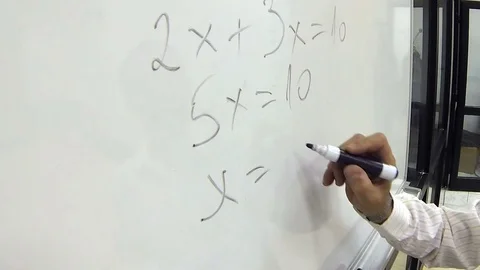 2x+3x=10
5x=10
x=